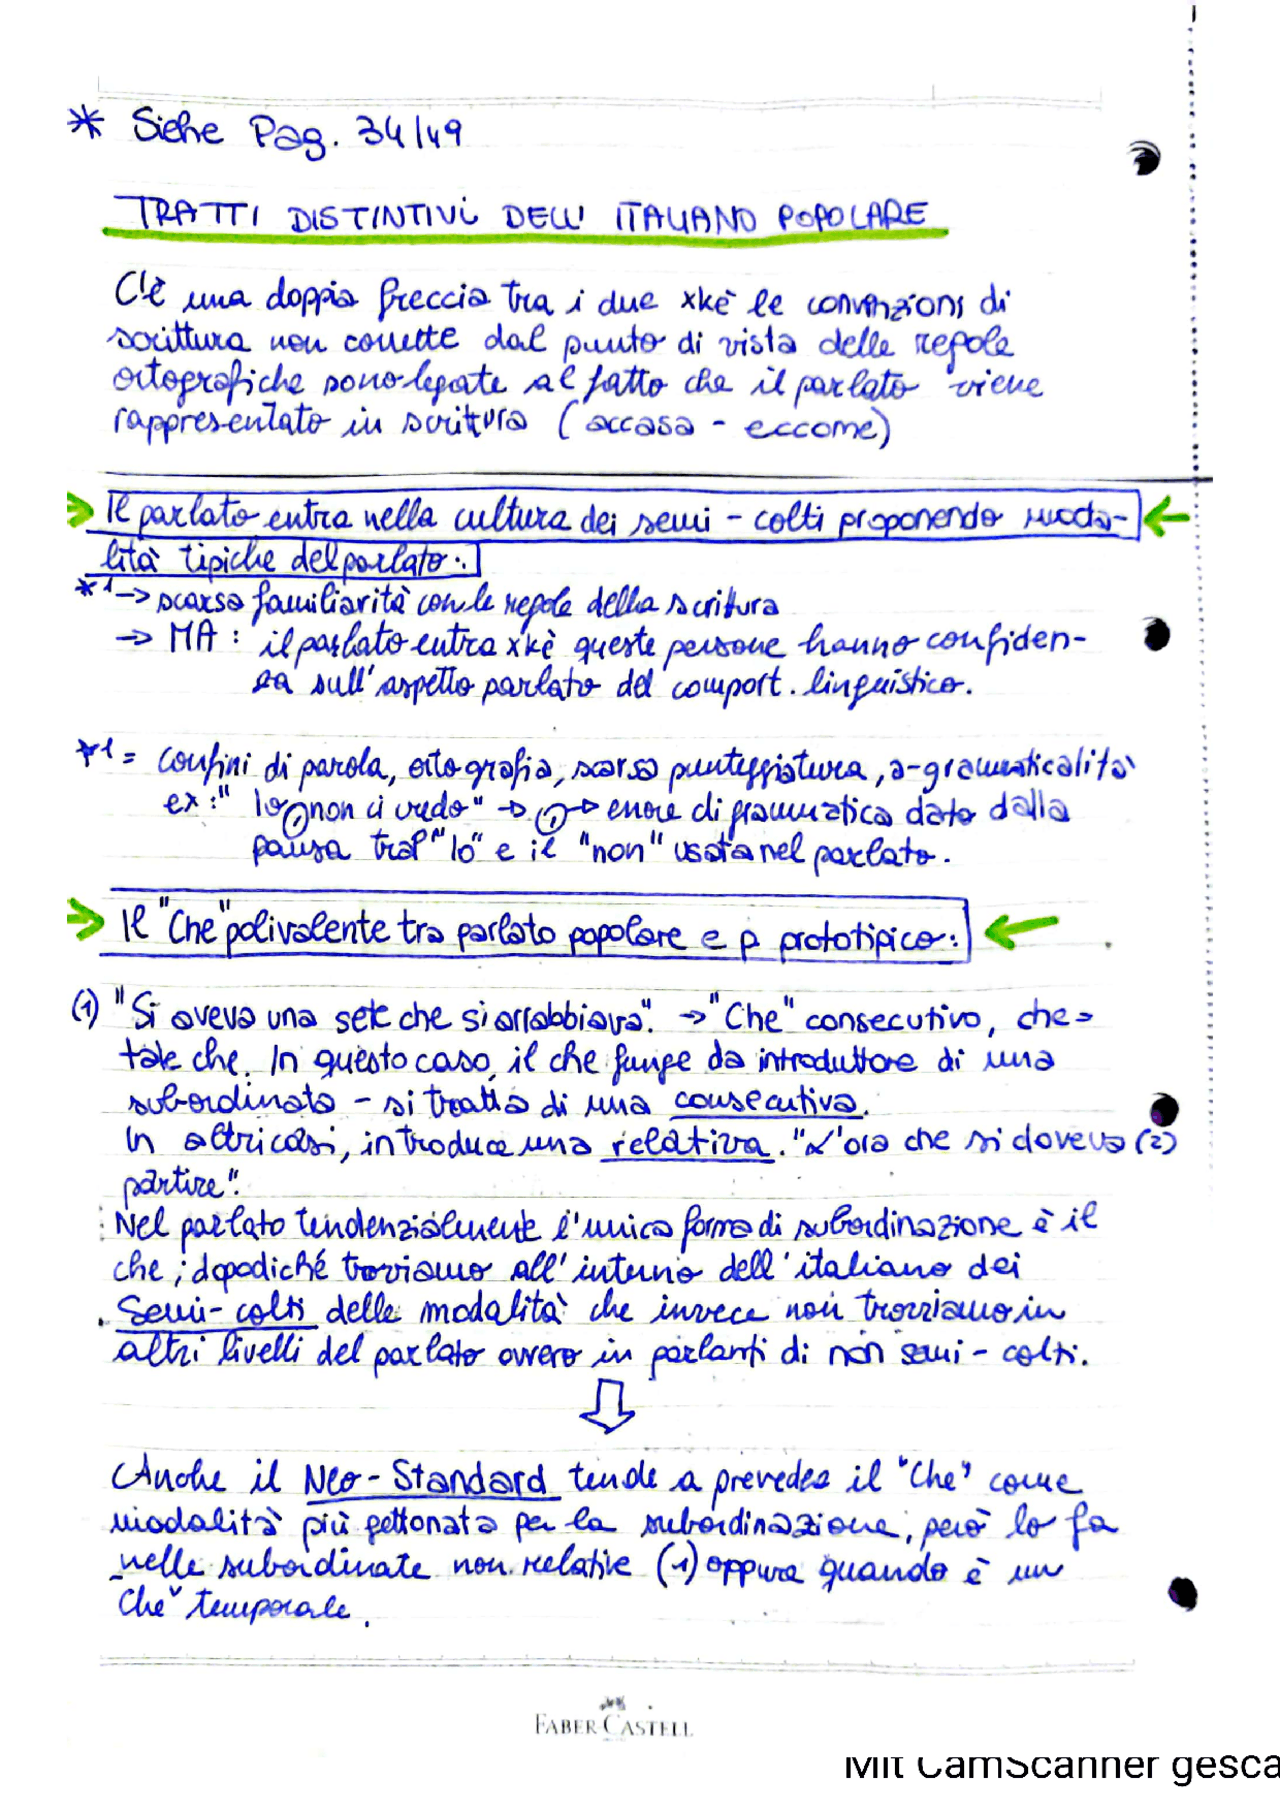 * Siehe Pag. 34/49
TRATTI DISTINTIVI DELL' ITALIANO POPOLARE
C'è una doppia freccia tra i due xkè le convenzioni di
scrittura non corrette dal punto di vista delle regole
ortografiche sono legate al fatto che il parlato viene
rappresentato in scrittura (accasa - eccome)
Il parlato entra nella cultura dei semi - colti proponendo moda-
lità tipiche del parlato:
*1 → scarsa familiarità con le regole della scrittura
→ MA: il parlato entra xkè queste persone hanno confiden-
za sull'aspetto parlato del comport. linguistico.
*1 = confini di parola, ortografia, scarsa punteggiatura, a-grammaticalità
ex: "Io, non ci vedo" → , → errore di grammatica dato dalla
pausa tra l' "Io" e il "non" usata nel parlato.
Il "Che" polivalente tra parlato popolare e p prototipico:
(1) "Si aveva una sete che si arrabbiava". → "Che" consecutivo, che =
tale che. In questo caso, il che funge da introduttore di una
subordinata - si tratta di una consecutiva.
In altri casi, introduce una relativa. "L'ora che si doveva (2)
partire".
Nel parlato tendenzialmente l'unica forma di subordinazione è il
che; dopodiché troviamo all'interno dell'italiano dei
Semi-colti delle modalità che invece non troviamo in
altri livelli del parlato ovvero in parlanti di non semi-colti.
Anche il Neo-Standard tende a prevedere il "Che" come
modalità più gettonata per la subordinazione, però lo fa
nelle subordinate non relative (1) oppure quando è un
"Che" temporale.
FABER-CASTELL
Mit CamScanner gesca